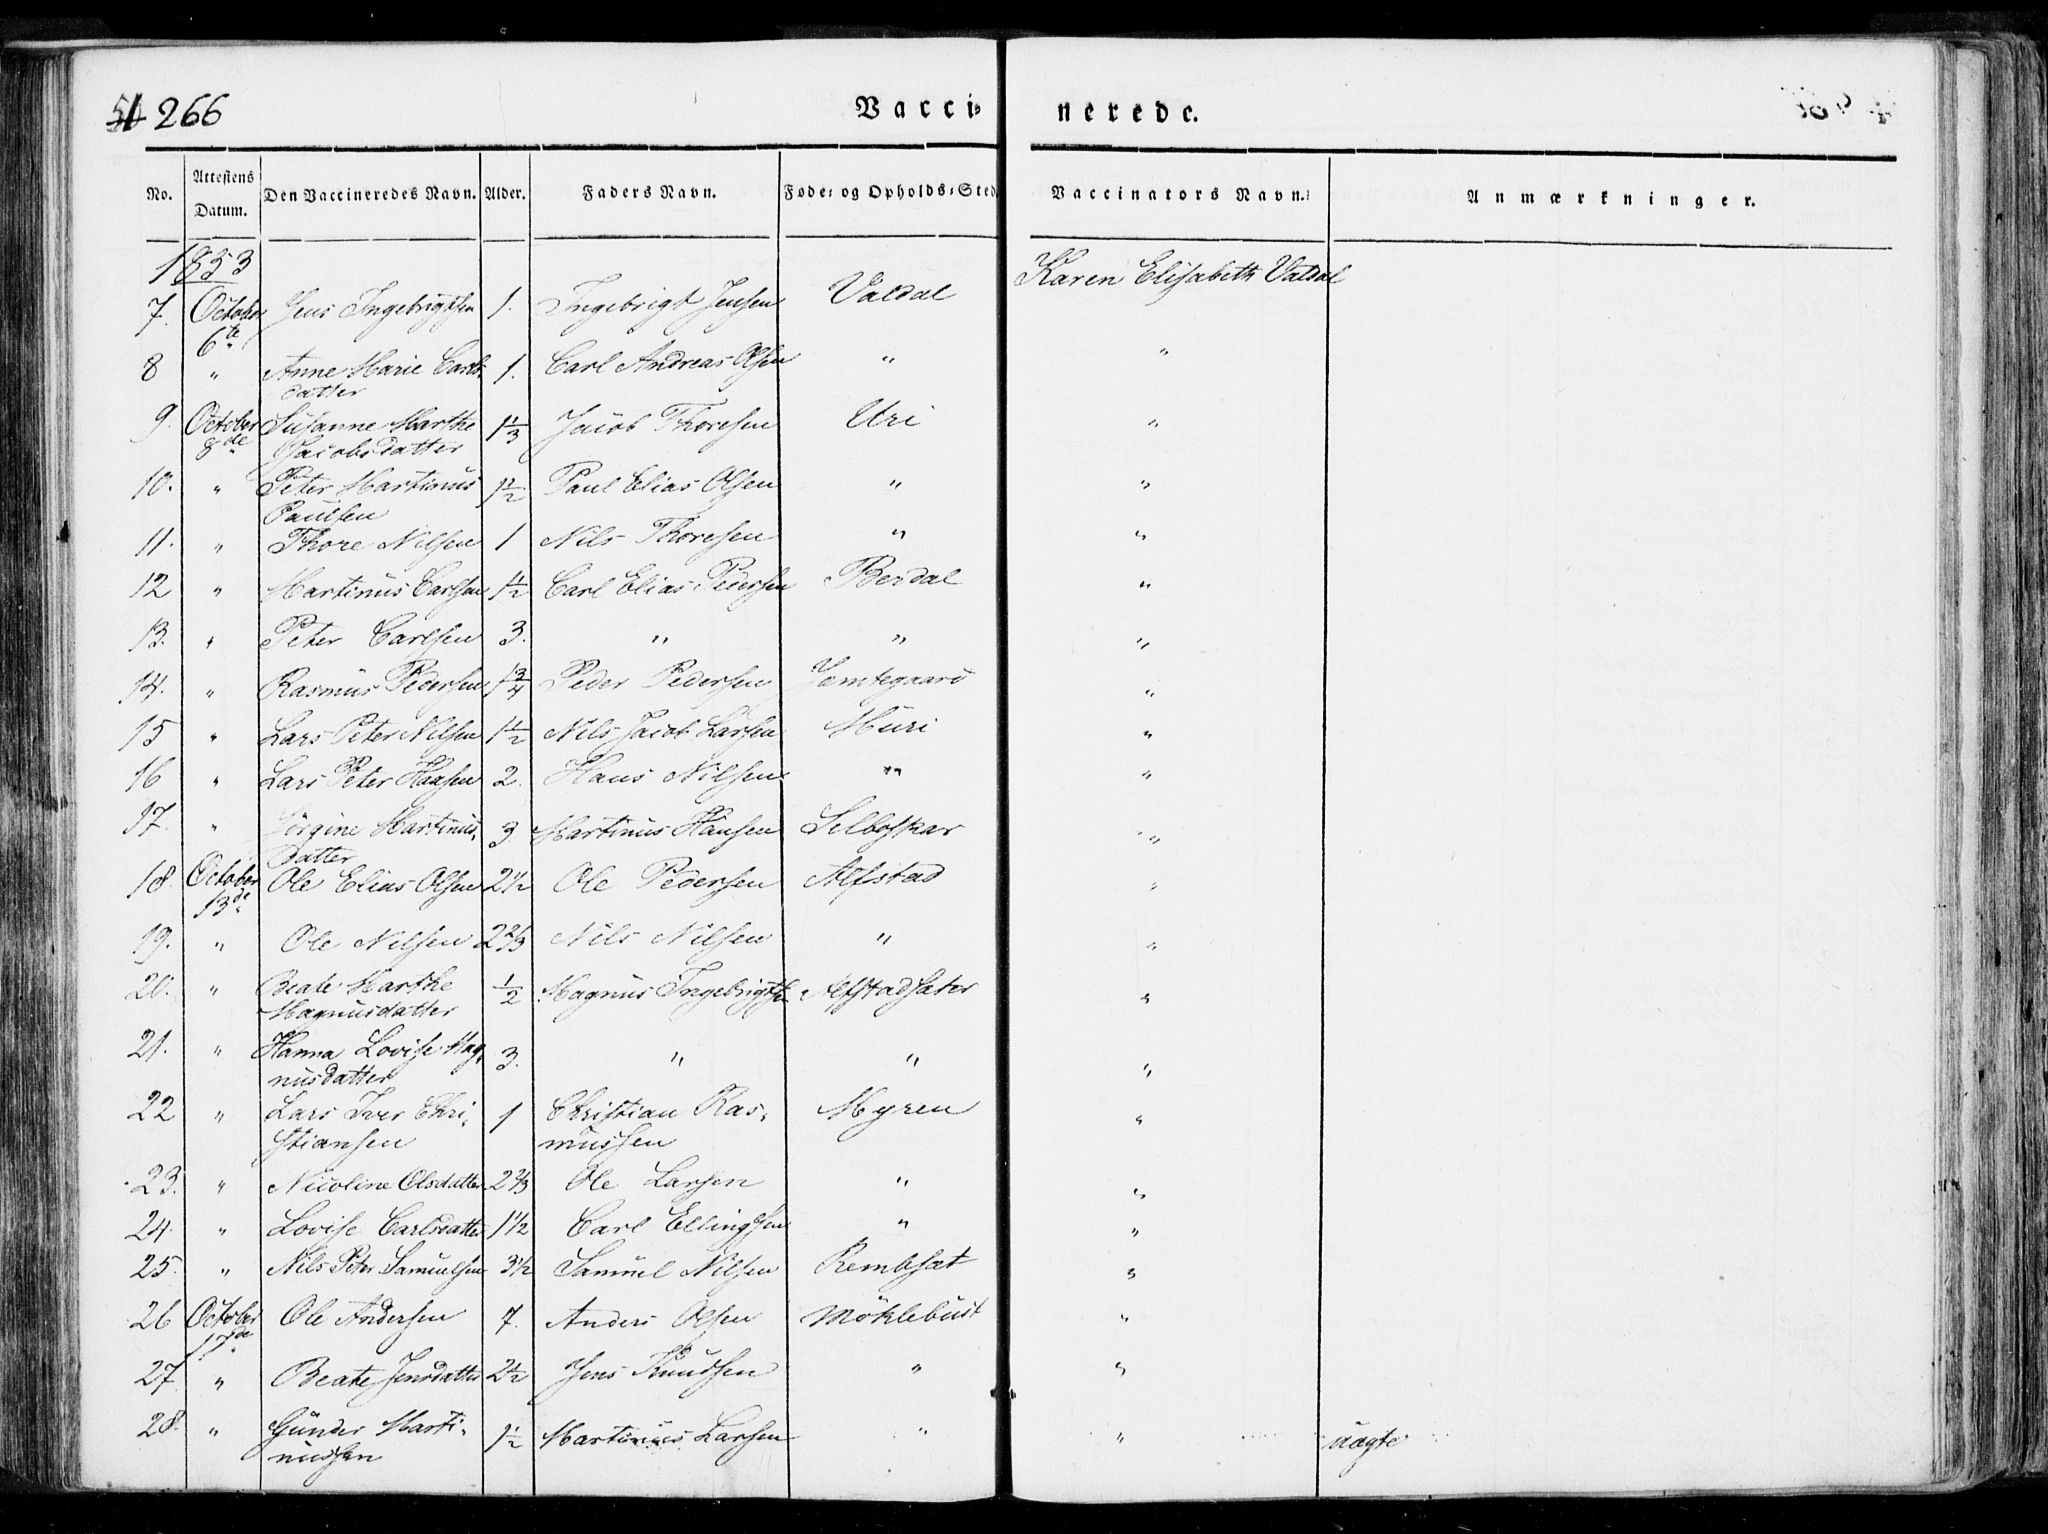 266 Vaccinerede.
No. Attestens Datum. Den Vaccineredes Navn. Alder. Faders Navn. Føde- og Opholds-Sted Vaccinators Navn. Anmærkninger.
1853
7. October 6te Jens Ingebrigtsen 1. Ingebrigt Jensen Valdal Karen Elisabeth Valdal
8 " Anne Marie Carls- 1. Carl Andreas Olsen " "
datter
9. October 8de Susanne Marthe 1 1/3 Jacob Thoresen Uri "
Jacobsdatter
10. " Peter Martinus 1 1/2 Paul Elias Olsen " "
Paulsen
11. " Thore Nilsen 1 Nils Thoresen " "
12 " Martinus Carlsen 1 1/2 Carl Elias Pedersen Berdal "
13. " Peter Carlsen 3. " " "
14. " Rasmus Pedersen 1 3/4 Peder Pedersen Jemtegaard "
15 " Lars Peter Nilsen 1 1/2 Nils Jacob Larsen Muri "
16 " Lars Peter Hansen 2. Hans Nilsen " "
17. " Jørgine Martinus- 3. Martinus Hansen Selboskar "
Datter
18. October 13de Ole Elias Olsen 2 1/2 Ole Pedersen Alfstad "
19. " Ole Nilsen 2 2/3 Nils Nilsen " "
20. " Beate Marthe 1/2 Magnus Ingebrigtsen Alfstadsæter "
Magnusdatter
21. " Hanna Lovise Mag- 3. " " "
nusdatter
22 " Lars Iver Chri- 1 Christian Ras- Myren "
stiansen mussen
23. " Nicoline Olsdatter 2 2/3 Ole Larsen " "
24. " Lovise Carlsdatter 1 1/2 Carl Ellingsen " "
25. " Nils Peter Samuelsen 3 1/2 Samuel Nilsen Rembsæt "
26 October 17de Ole Andersen 7. Anders Olsen Möklebust "
27. " Beate Jensdatter 2 1/2 Jens Knudsen " "
28. " Gunder Marti- 1 1/2 Martinus Larsen " " uægte
nussen